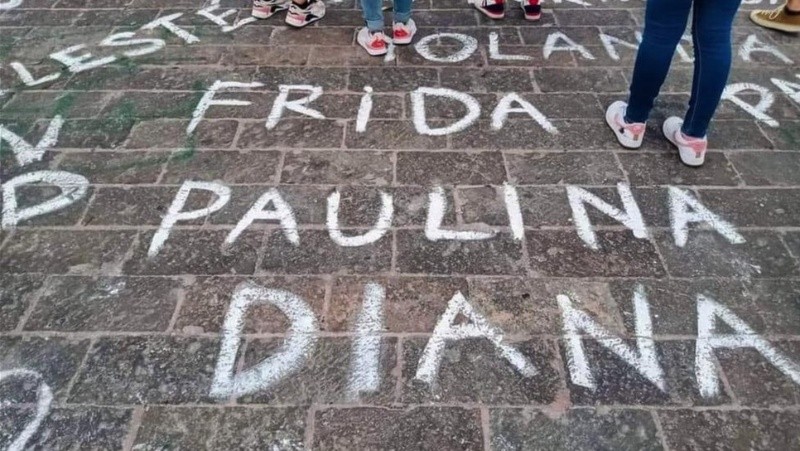 LESTE
OLANDA
FRIDA
PAULINA
DIANA